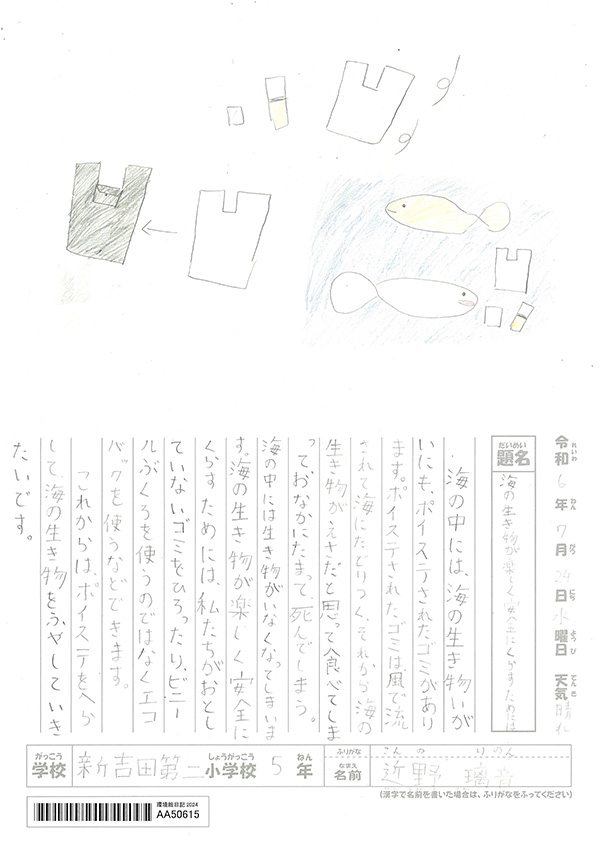 令和6年7月24日水曜日 天気晴れ
れいわ ねん がつ にち ようび てんき
だいめい
題名 海の生き物が楽しく安全にくらすためには
海の中には、海の生き物いが
いにも、ポイステされたゴミがあり
ます。ポイステされたゴミは、風で流
されて海にたどりつく。それから海の
生き物がえさだと思って食べてしま
っておなかにたまって、死んでしまう。
海の中には生き物がいなくなってしまいま
す。海の生き物が楽しく安全に
くらすためには、私たちがおとし
ていないゴミをひろったり、ビニー
ルぶくろを使うのではなくエコ
バックを使うなどできます。
これからは、ポイステをへら
して海の生き物をふやしていき
たいです。
がっこう しょうがっこう ねん
学校 新吉田第二小学校 5年
ふりがな こんの りのん
なまえ
名前 近野 璃音
(漢字で名前を書いた場合は、ふりがなをふってください)
環境絵日記2024
AA50615